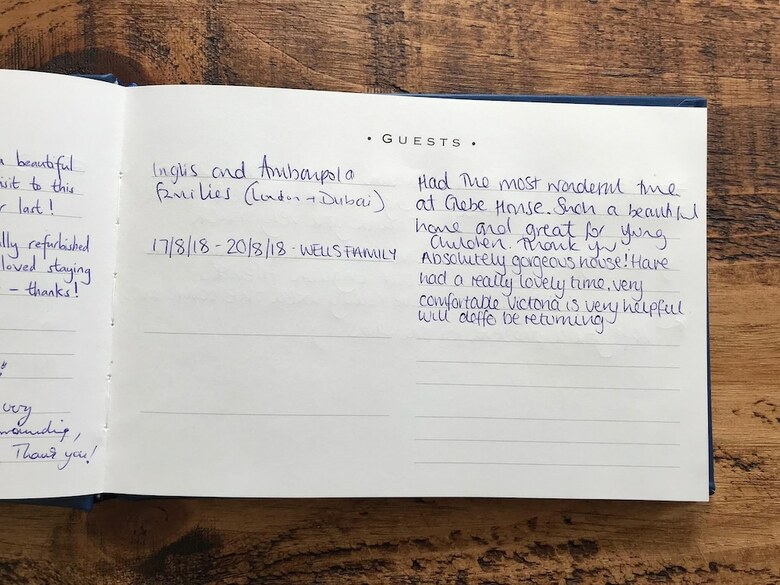 a beautiful
isit to this
r last!
lly refurbished
loved staying
– thanks!
very
Thank you!
• GUESTS •
Inglis and Ambanpola
families (London + Dubai)
17/8/18 - 20/8/18 - WELLS FAMILY
Had the most wonderful time
at Glebe House. Such a beautiful
home and great for yung
Children. Thank yu
Absolutely gorgeous house! Have
had a really lovely time. very
comfortable Victoria is very helpful
will deffo be returning